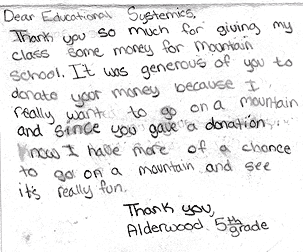 Dear Educational Systemics,
Thank you so much for giving my
class some money for Mountain
school. It was generous of you to
donate your money because I
really want to go on a mountain
and since you gave a donation
now I have more of a chance
to go on a mountain and see
it's really fun.
Thank you,
Alderwood 5th grade